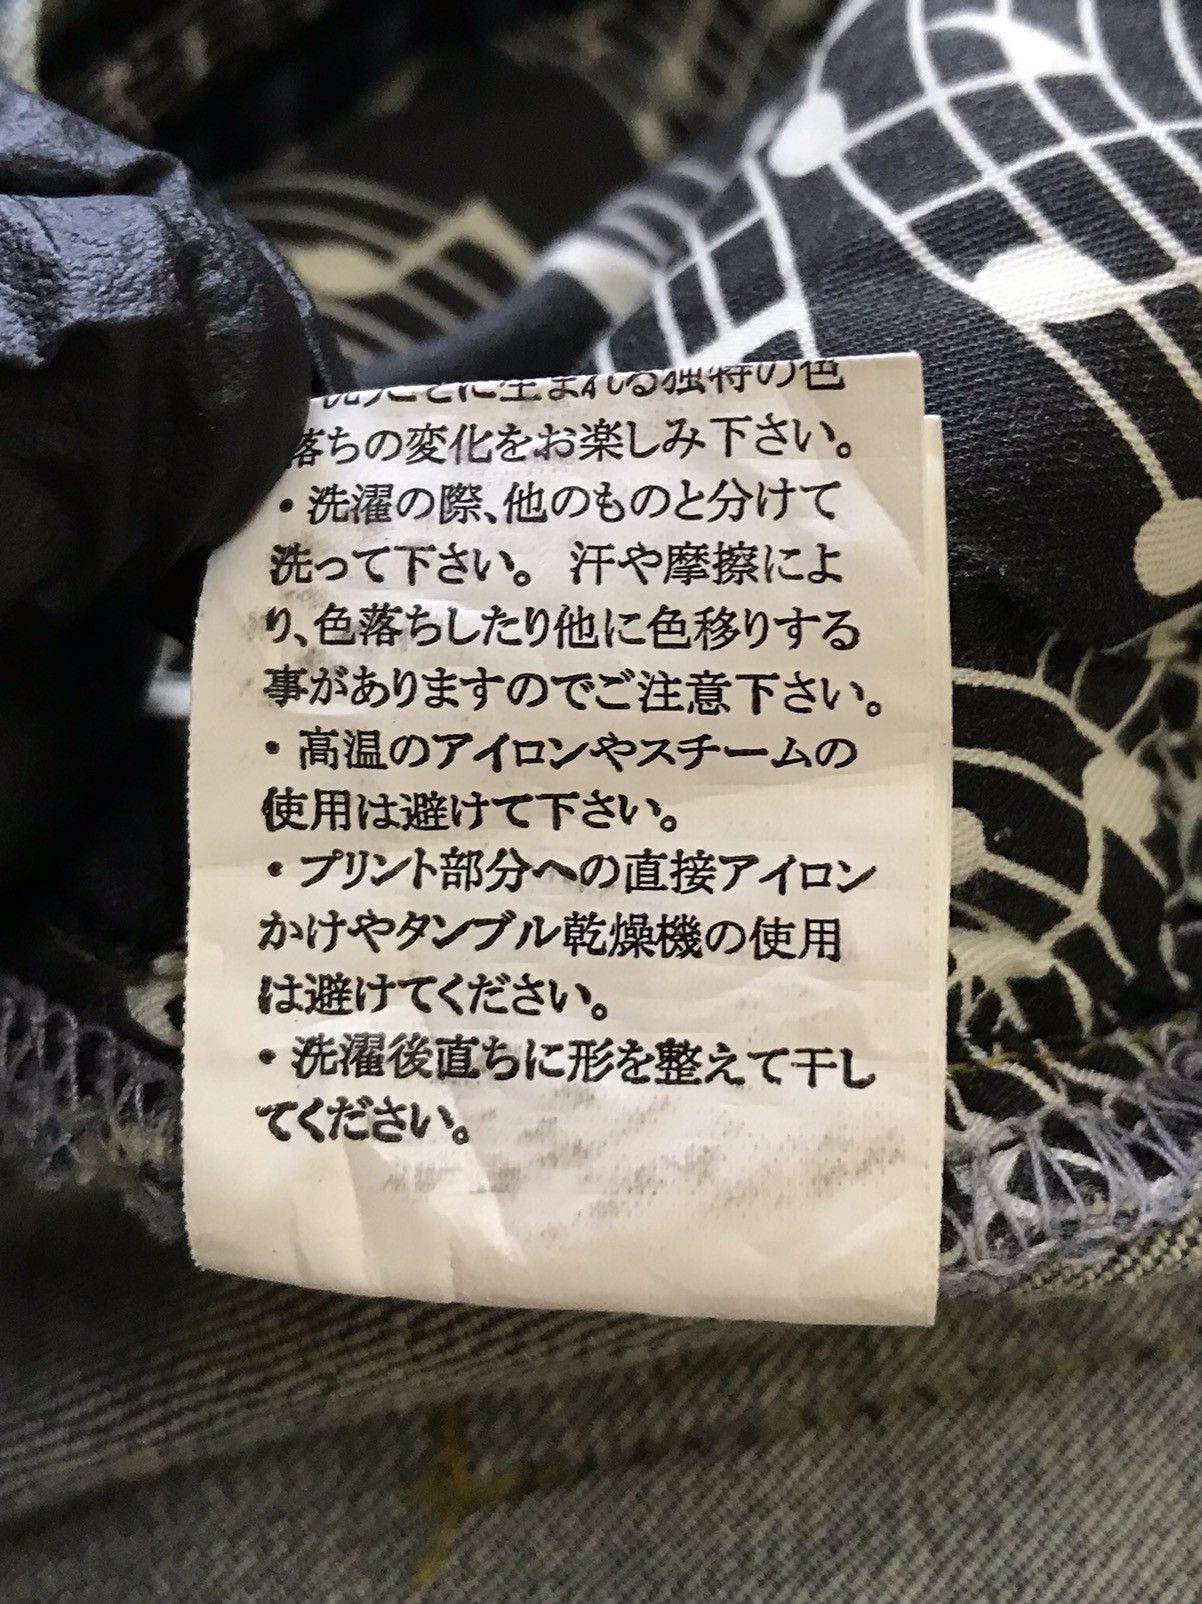 洗うごとに生まれる独特の色
落ちの変化をお楽しみ下さい。
・洗濯の際、他のものと分けて
洗って下さい。 汗や摩擦によ
り、色落ちしたり他に色移りする
事がありますのでご注意下さい。
・高温のアイロンやスチームの
使用は避けて下さい。
・プリント部分への直接アイロン
かけやタンブル乾燥機の使用
は避けてください。
・洗濯後直ちに形を整えて干し
てください。